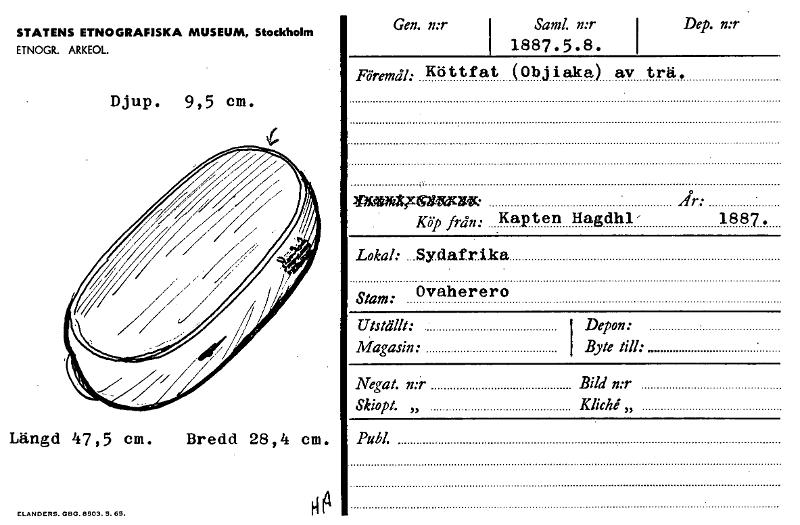 STATENS ETNOGRAFISKA MUSEUM, Stockholm
ETNOGR. ARKEOL.
Djup. 9,5 cm.
Längd 47,5 cm. Bredd 28,4 cm.
ELANDERS, GBG. 8503. 5. 65.
HA
Gen. n:r Saml. n:r Dep. n:r
1887.5.8.
Föremål: Köttfat (Objiaka) av trä.
År:
Köp från: Kapten Hagdhl 1887.
Lokal: Sydafrika
Stam: Ovaherero
Utställt: Depon:
Magasin: Byte till:
Negat. n:r Bild n:r
Skiopt. „ Kliché „
Publ.